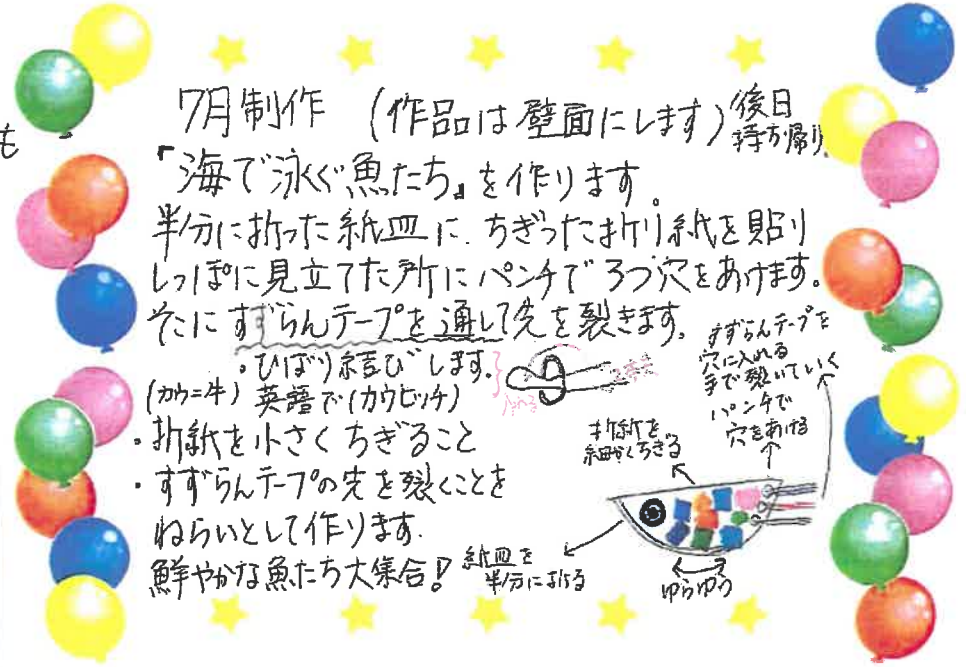 も
7月制作 (作品は壁面にします) 後日
持ち帰り
『海で泳ぐ魚たち』を作ります。
半分に折った紙皿に、ちぎった折り紙を貼り
しっぽに見立てた所にパンチで3つ穴をあけます。
そこにすずらんテープを通して先を裂きます。
・ひばり結びします。
(カウ=牛) 英語で(カウヒッチ)
・折紙を小さくちぎること
・すずらんテープの先を裂くことを
ねらいとして作ります。
鮮やかな魚たち大集合!
すずらんテープを
穴に入れる
手で裂いていく
パンチで
穴をあける
折紙を
細かくちぎる
紙皿を
半分に折る
ゆらゆら